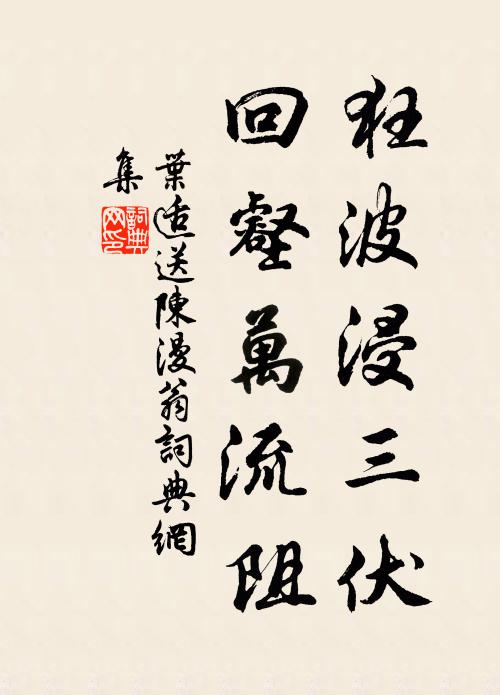 狂波浸三伏
回壑萬流阻
葉适送陳漫翁詞典網
集
詞典
网印